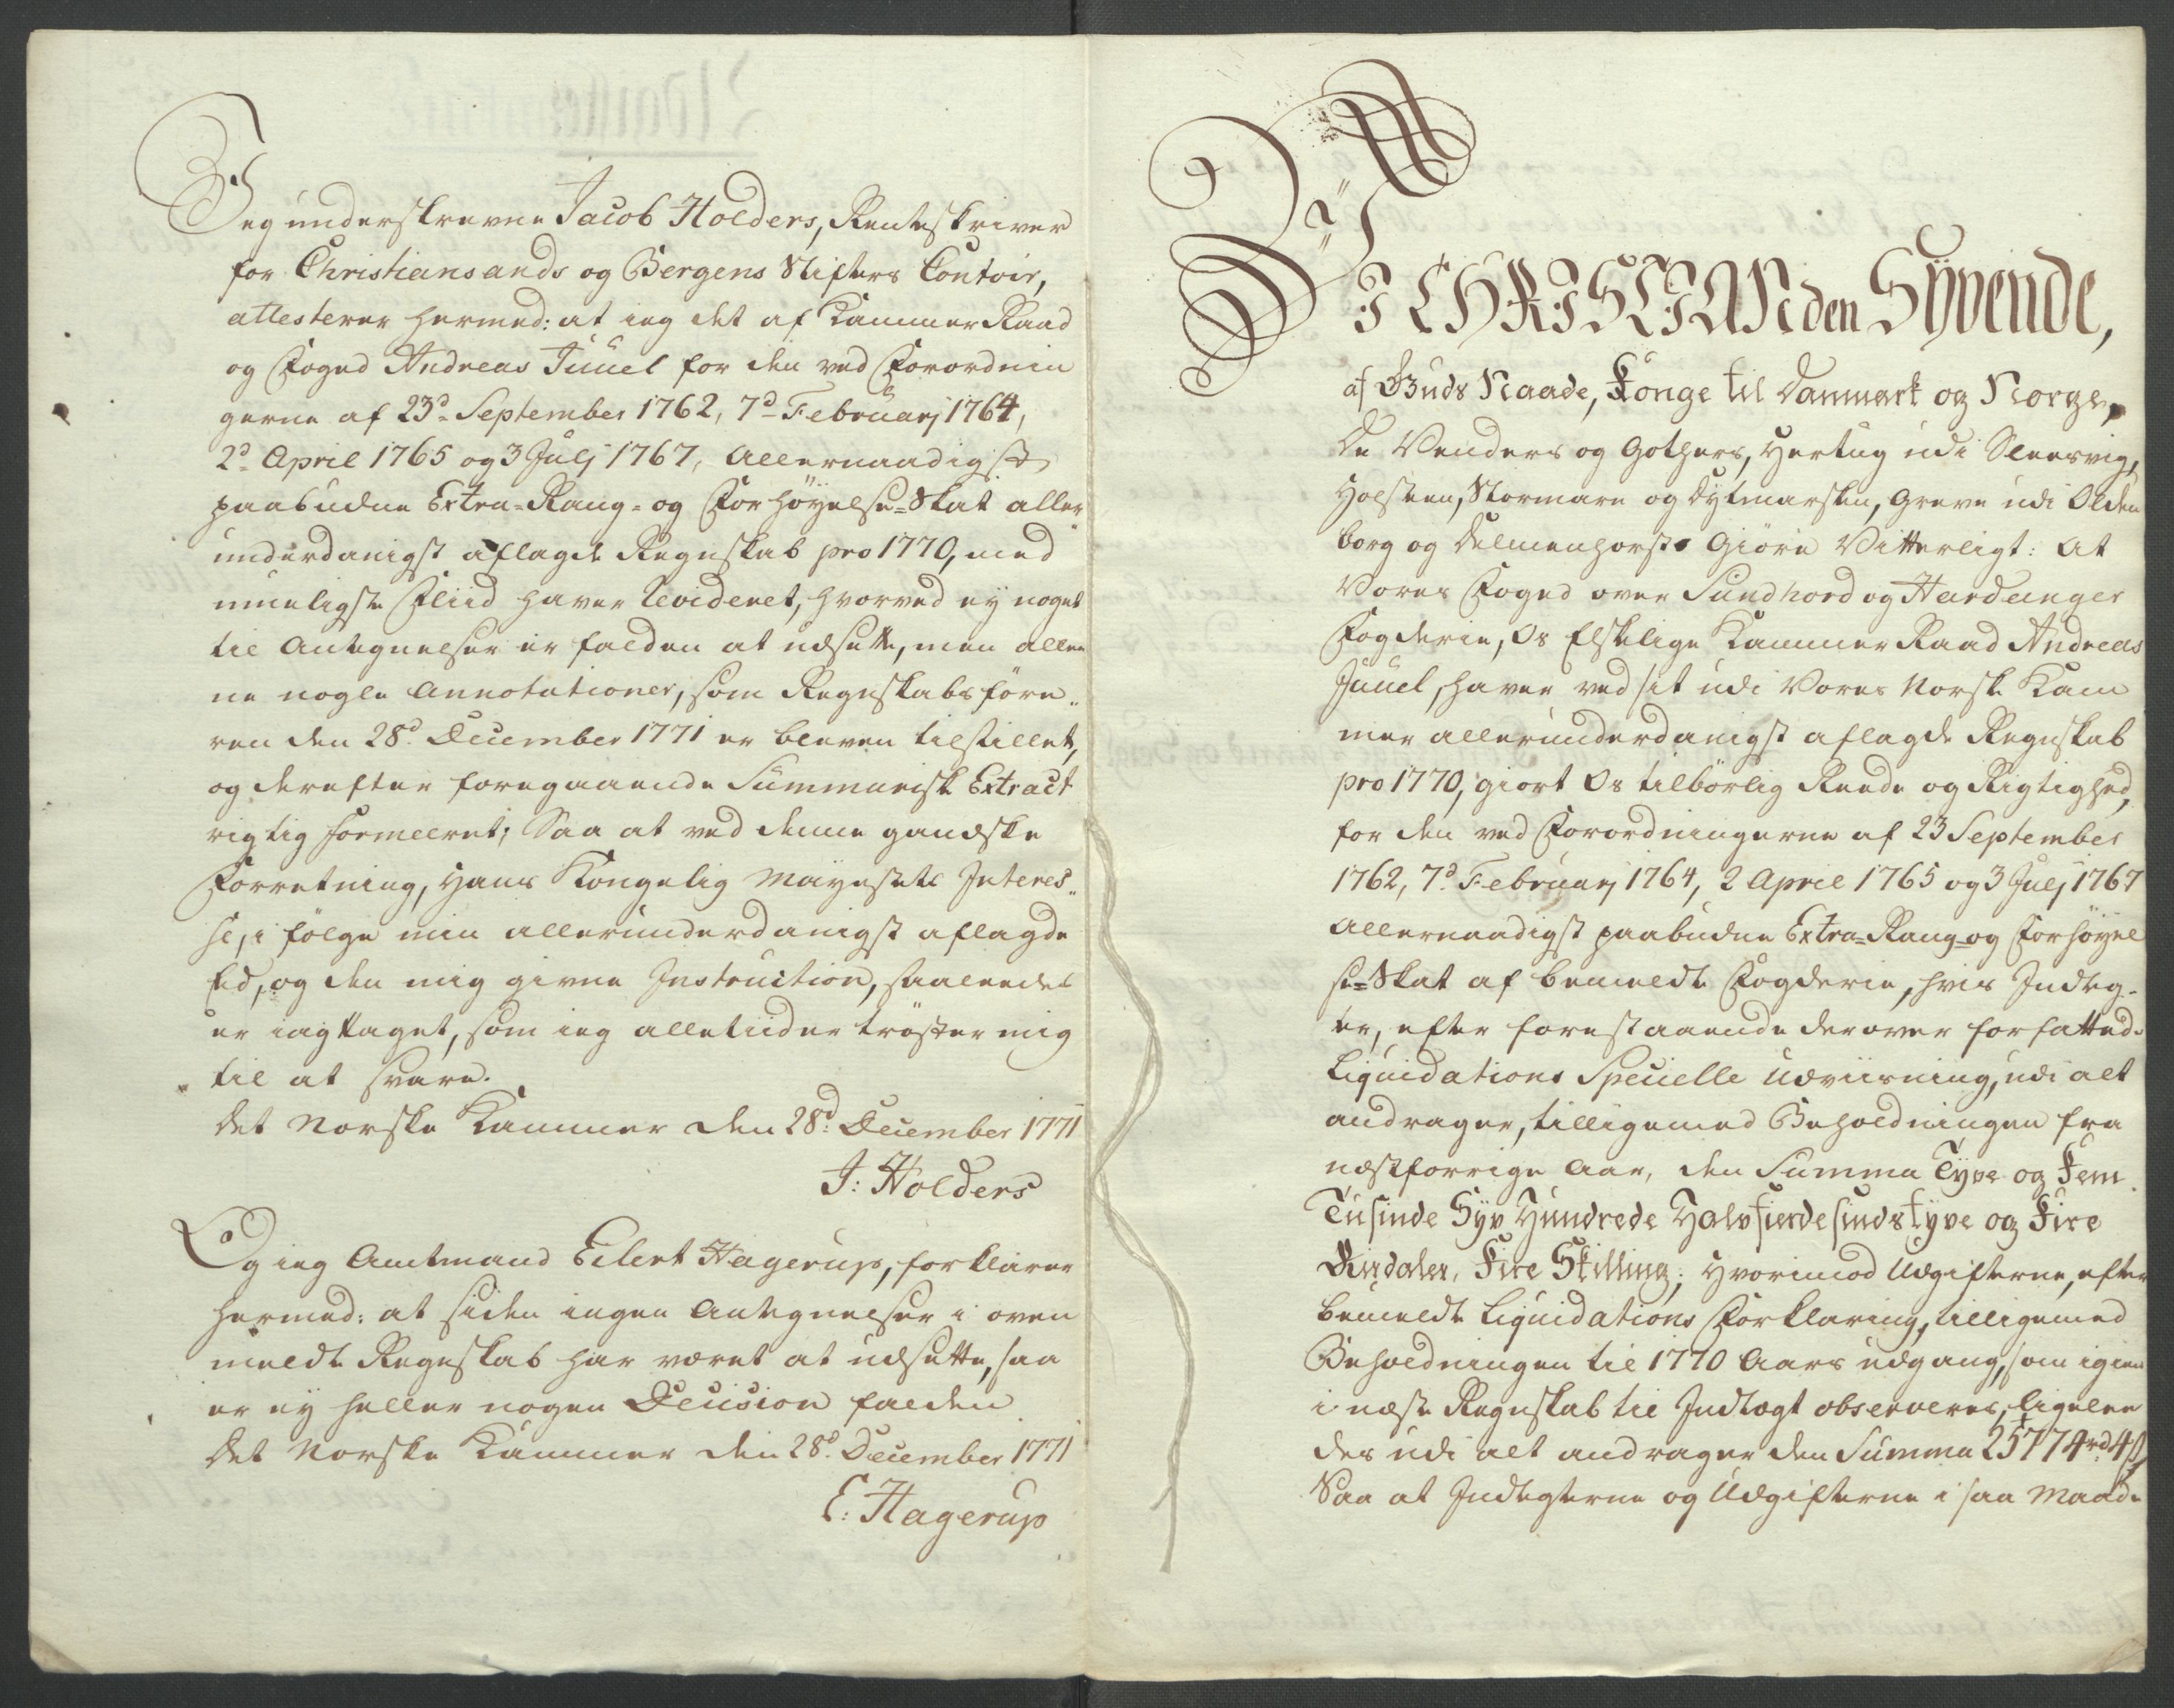 Jeg underskrevne Jacob Holders, Renteskriver
for Christiansands og Bergens Stifters Contoir,
attesterer hermed: at ieg det af Kammer Raad
og Foged Andreas Juuel for den ved Forordnin
gerne af 23d. September 1762, 7d. Februarj 1764,
2d. April 1765 og 3 Julj 1767, allernaadigst
paabudne Extra-Rang- og Forhöyelse-Skat aller
underdanigst aflagde Regnskab pro 1770, med
mueligste Fliid haver Revideret, hvorved ey noget
til Antegnelser er falden at udsætte, men allee
ne nogle Annotationer, som Regnskabsföre„
ren den 28d. December 1771 er bleven tilstillet,
og derefter foregaaende Summarisk Extract
rigtig formeeret; Saa at ved denne gandske
Forretning, Hans Kongelig Mayestets Interes„
se, i fölge min allerunderdanigst aflagde
Eed, og den mig givne Instruction, saaleedes
er iagttaget, som ieg alletiider tröster mig
til at svare.
Det Norske Kammer den 28d. December 1771
J: Holders
Og ieg Amtmand Eilert Hagerup, forklarer
hermed: at siden ingen Antegnelser i oven
meldte Regnskab har været at udsætte, saa
er ey heller nogen Decision falden
Det Norske Kammer den 28d. December 1771
E: Hagerup
Vi CHRISTIAN den Syvende,
af Guds Naade, Konge til Danmark og Norge,
De Venders og Gothers, Hertug udi Slesvig,
Holsteen, Stormarn og Dytmarsken, Greve udi Olden
borg og Delmenhorst Giöre Vitterligt: At
Vores Foged over Sundhord og Hardanger
Fogderie, Os Elskelige Kammer Raad Andreas
Juuel, haver ved sit udi Vores Norske Kam
mer allerunderdanigst aflagde Regnskab
pro 1770, giort Os tilbörlig Reede og Rigtighed,
for den ved Forordningerne af 23 September
1762, 7d. Februarj 1764, 2 April 1765 og 3 Julj 1767
allernaadigst paabudne Extra-Rang- og Forhöyel
se-Skat af bemeldte Fogderie, hvis Indteg-
ter, efter forestaaende derover forfattede
Liquidations Specielle Udviisning, udi alt
andrager, tilligemed Beholdningen fra
næstforrige Aar, den Summa Tyve og Fem
Tusinde Syv Hundrede Halvfierdesindstyve og Fire
Rixdaler, Fire Skilling; Hvorimod Udgifterne, efter
bemeldte Liquidations Forklaring, tilligemed
Beholdningen til 1770 Aars udgang, som igien
i næste Regnskab til Indtægt observeres, ligelee
des udi alt andrager den Summa 25774 rd 4 ß,
Saa at Indtegterne og Udgifterne i saa Maade